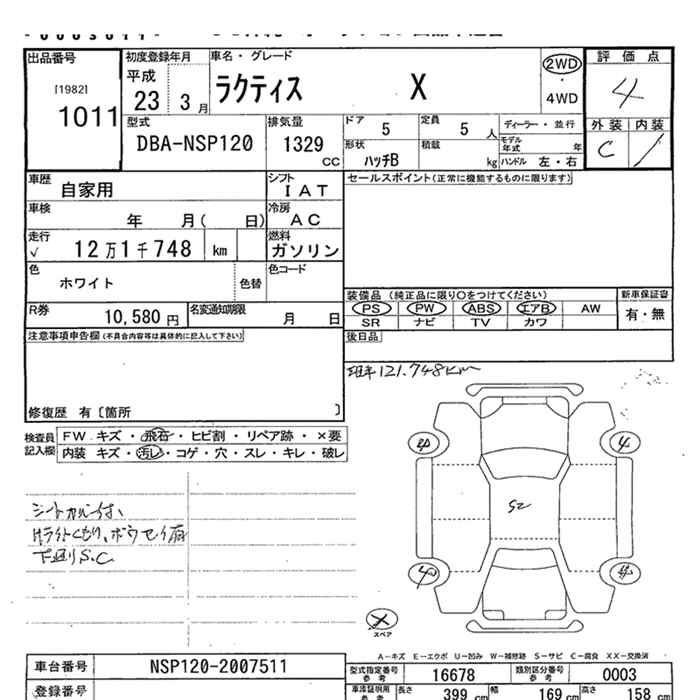 出品番号
[1982]
1011
初度登録年月
平成
23 3 月
車名・グレード
ラクティス X
2WD
・
4WD
評価点
4
外装 内装
C
型式
DBA-NSP120
排気量
1329
CC
ドア 5
定員 5 人
ディーラー・並行
形状
ハッチB
積載 kg
モデル年式 年
ハンドル 左・右
車歴
自家用
シフト
IAT
セールスポイント(正常に機能するものに限ります)
車検
年 月( 日)
冷房
AC
走行
√ 12万1千748 km
燃料
ガソリン
色
ホワイト
色替
色コード
R券
10,580 円
名変通知期限
月 日
装備品 (純正品に限り○をつけてください)
PS PW ABS エアB AW
SR ナビ TV カワ
新車保証書
有・無
注意事項申告欄(不具合内容等は具体的に記入して下さい)
後日品
121.748km
修復歴 有〔箇所 〕
検査員
記入欄
FW キズ・飛石・ヒビ割・リペア跡・×要
内装 キズ・汚レ・コゲ・穴・スレ・キレ・破レ
シートカバー付、
下廻りS.C
4
S2
スペア
A-キズ E-エクボ U-凹み W-補修跡 S-サビ C-腐食 XX-交換済
車台番号
NSP120-2007511
型式指定番号
参考
16678
類別区分番号
参考
0003
登録番号
車検証明用
参考
長さ 399 cm
幅 169 cm
高さ 158 cm